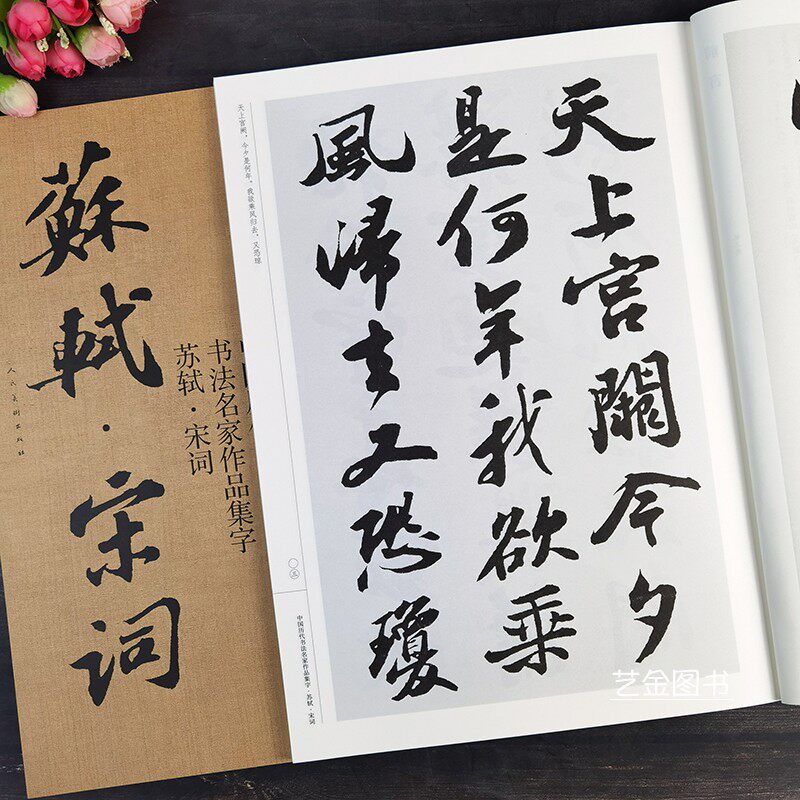 蘇軾·宋词
书法名家作品集字
苏轼·宋词
人民美術出版社
天上宫阙,今夕是何年。我欲乘风归去,又恐琼
天上宮闕今夕
是何年我欲乘
風歸去又恐瓊
〇三
中国历代书法名家作品集字·苏轼·宋词
艺金图书